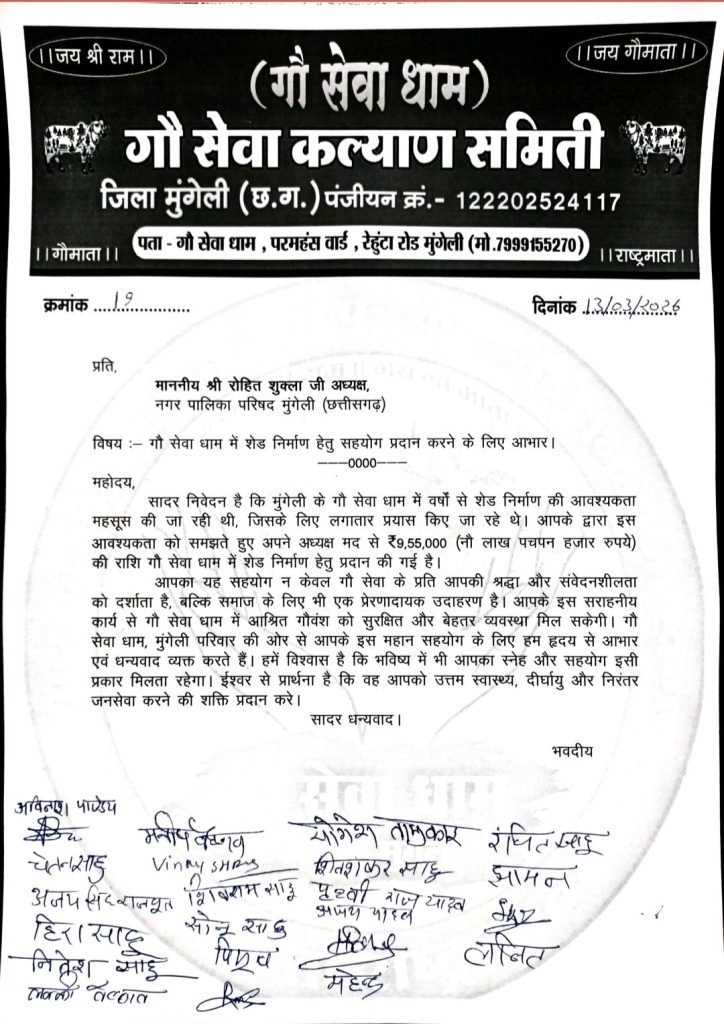 ।।जय श्री राम।।
।।जय गौमाता।।
(गौ सेवा धाम)
गौ सेवा कल्याण समिती
जिला मुंगेली (छ.ग.) पंजीयन क्रं.- 122202524117
पता - गौ सेवा धाम , परमहंस वार्ड , रेहुंटा रोड मुंगेली (मो.7999155270)
।।गौमाता।।
।।राष्ट्रमाता।।
क्रमांक ...19...................
दिनांक .13/03/2026
प्रति,
माननीय श्री रोहित शुक्ला जी अध्यक्ष,
नगर पालिका परिषद मुंगेली (छत्तीसगढ़)
विषय :– गौ सेवा धाम में शेड निर्माण हेतु सहयोग प्रदान करने के लिए आभार।
———0000———
महोदय,
सादर निवेदन है कि मुंगेली के गौ सेवा धाम में वर्षो से शेड निर्माण की आवश्यकता
महसूस की जा रही थी, जिसके लिए लगातार प्रयास किए जा रहे थे। आपके द्वारा इस
आवश्यकता को समझते हुए अपने अध्यक्ष मद से ₹9,55,000 (नौ लाख पचपन हजार रुपये)
की राशि गौ सेवा धाम में शेड निर्माण हेतु प्रदान की गई है।
आपका यह सहयोग न केवल गौ सेवा के प्रति आपकी श्रद्धा और संवेदनशीलता
को दर्शाता है, बल्कि समाज के लिए भी एक प्रेरणादायक उदाहरण है। आपके इस सराहनीय
कार्य से गौ सेवा धाम में आश्रित गौवंश को सुरक्षित और बेहतर व्यवस्था मिल सकेगी। गौ
सेवा धाम, मुंगेली परिवार की ओर से आपके इस महान सहयोग के लिए हम हृदय से आभार
एवं धन्यवाद व्यक्त करते हैं। हमें विश्वास है कि भविष्य में भी आपका स्नेह और सहयोग इसी
प्रकार मिलता रहेगा। ईश्वर से प्रार्थना है कि वह आपको उत्तम स्वास्थ्य, दीर्घायु और निरंतर
जनसेवा करने की शक्ति प्रदान करे।
सादर धन्यवाद।
भवदीय
सेवा धाम
अविनाश पाण्डेय
योगेश ताम्रकार
चेतन साहू
शिवशंकर साहू
झामन
शिवराम साहू
पृथ्वी राज यादव
अजय यादव
हिरा साहू
सोनू साहू
नितेश साहू
ललित
महेन्द्र